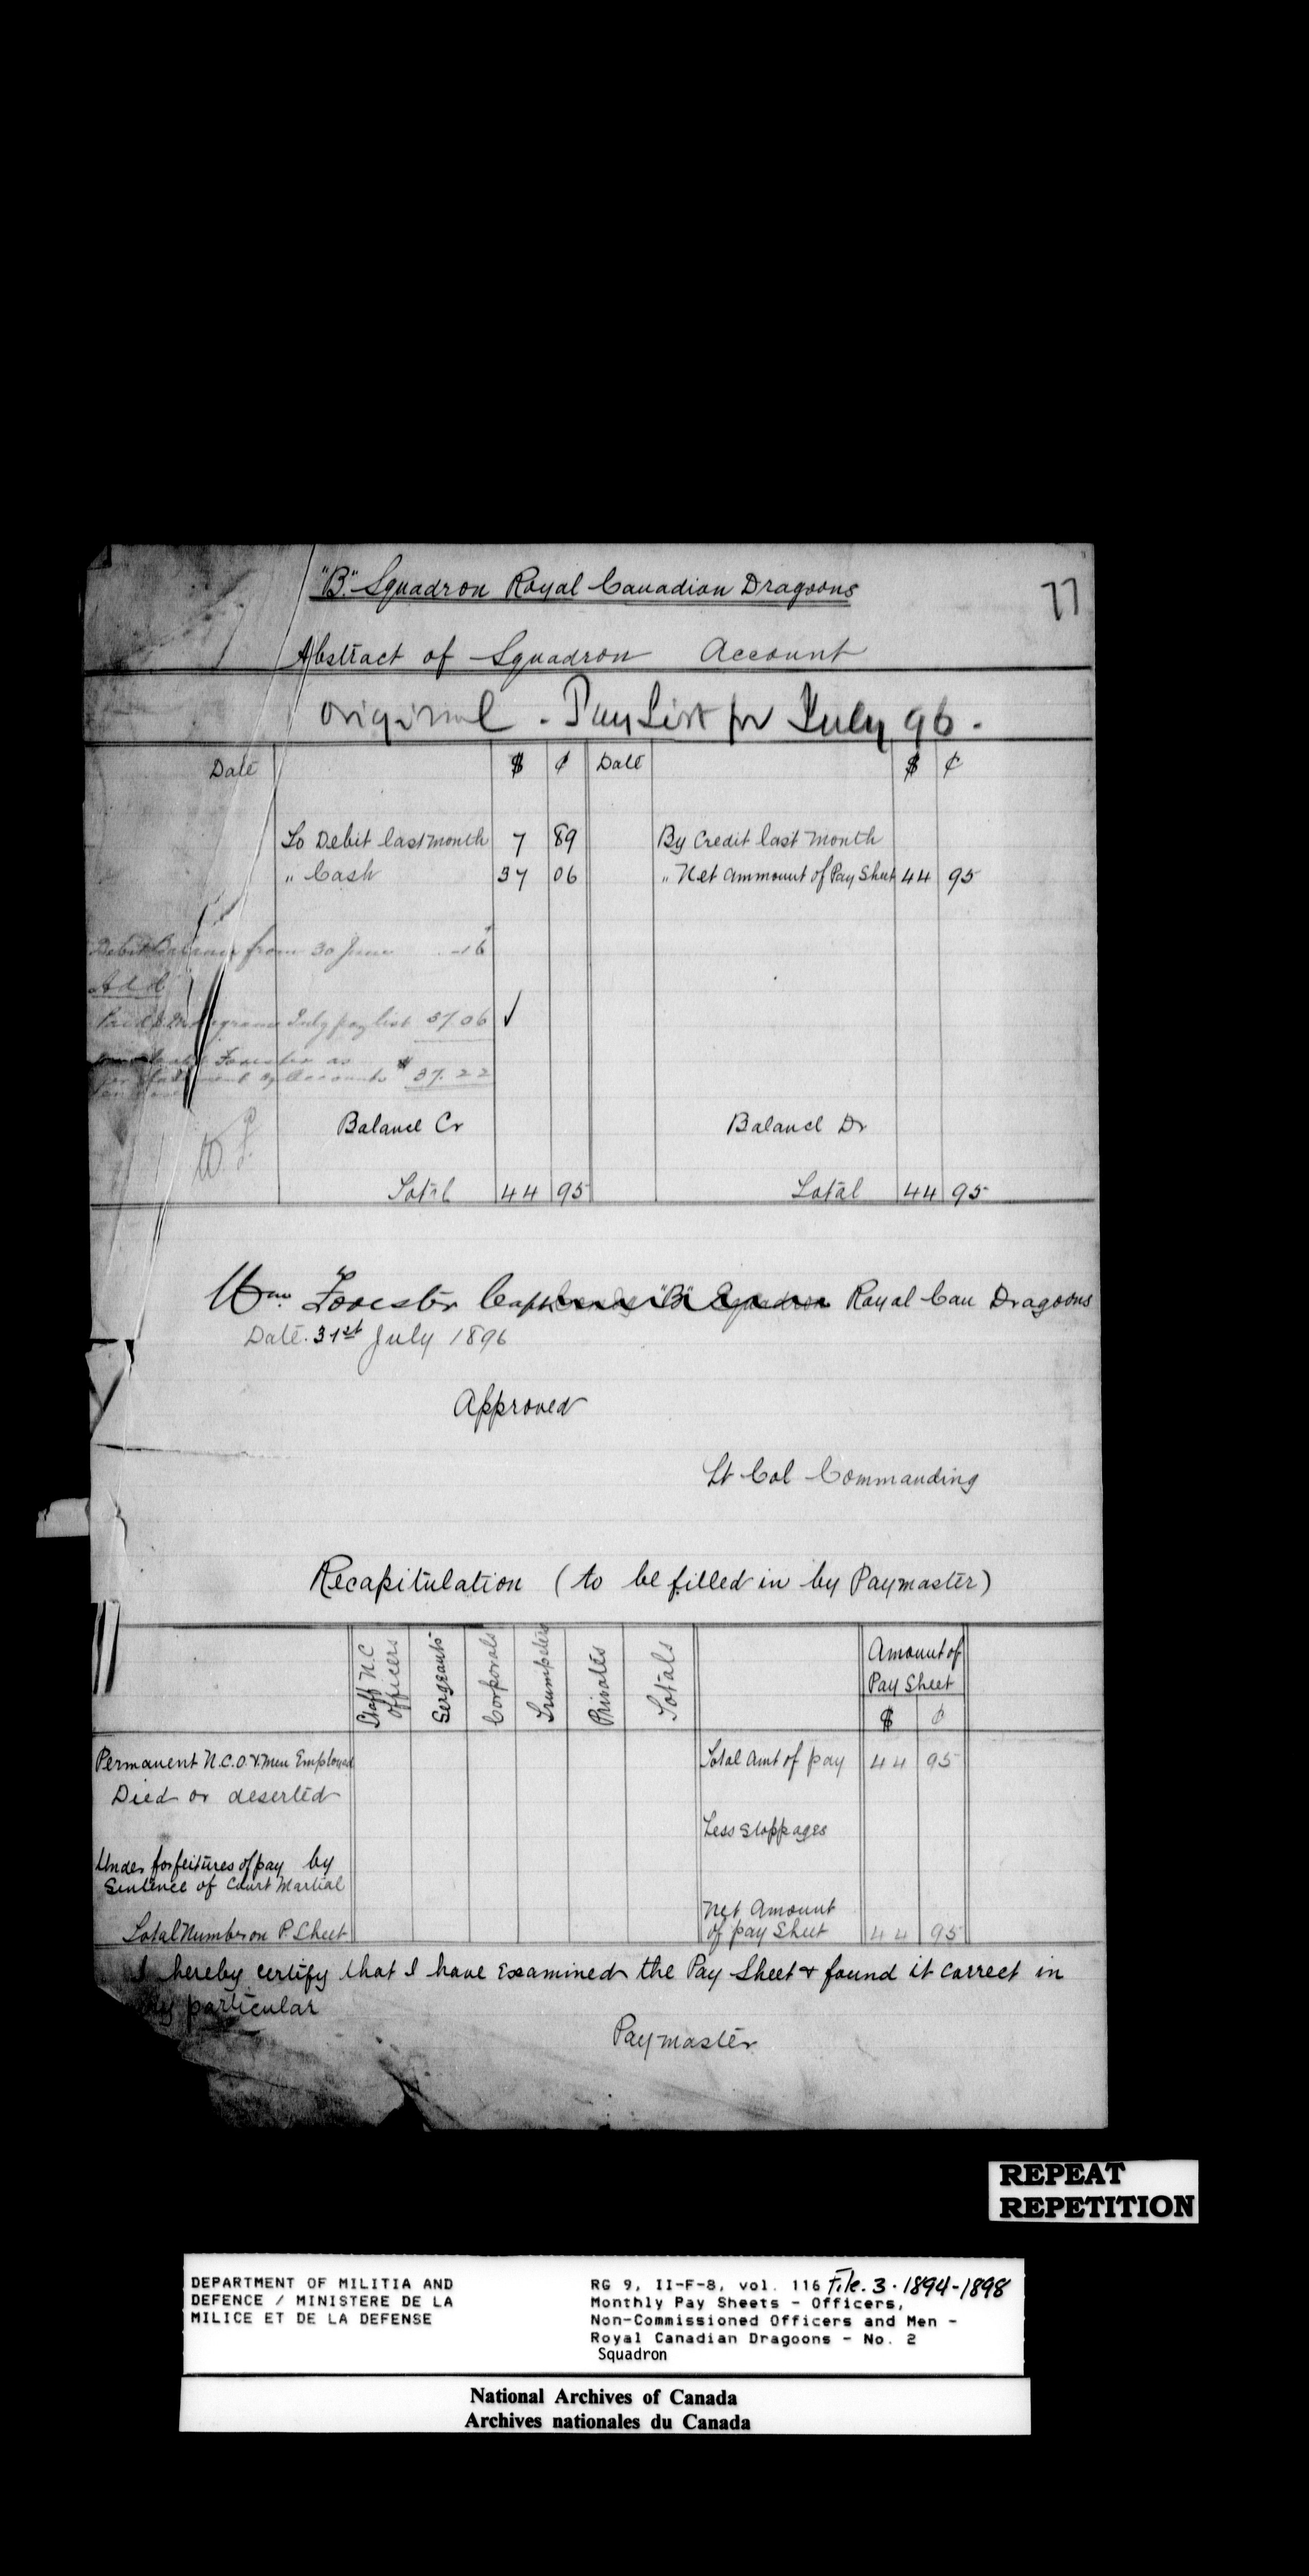 "B." Squadron Royal Canadian Dragoons
77
Abstract of Squadron Account
Original - Pay List for July 96 -
Date $ ¢ Date $ ¢
To Debit last month 7 89 By Credit last month
" Cash 37 06 " Net Ammount of Pay Sheet 44 95
Debit Balance from 30 June 16
Add
Paid July pay list 37 06 ✓
Forester as
$ 37.22
Balance Cr Balance Dr
W F.
Total 44 95 Total 44 95
Wm. Forester Capt "B" Squadron Royal Can Dragoons
Date. 31st July 1896
Approved
Lt Col Commanding
Recapitulation (to be filled in by Paymaster)
Staff N.C Officers Sergeants Corporals Trumpeters Privates Totals Amount of Pay Sheet
$ ¢
Permanent N.C.O. & Men Employed Total Amt of pay 44 95
Died or deserted
Less Stoppages
Under forfeitures of pay by
Sentence of Court Martial
Net Amount
Total Number on P. Sheet of pay Sheet 44 95
I hereby certify that I have examined the Pay Sheet & found it correct in
particular
Paymaster
REPEAT
REPETITION
DEPARTMENT OF MILITIA AND
DEFENCE / MINISTERE DE LA
MILICE ET DE LA DEFENSE
RG 9, II-F-8, vol. 116 File. 3. 1894-1898
Monthly Pay Sheets - Officers,
Non-Commissioned Officers and Men -
Royal Canadian Dragoons - No. 2
Squadron
National Archives of Canada
Archives nationales du Canada